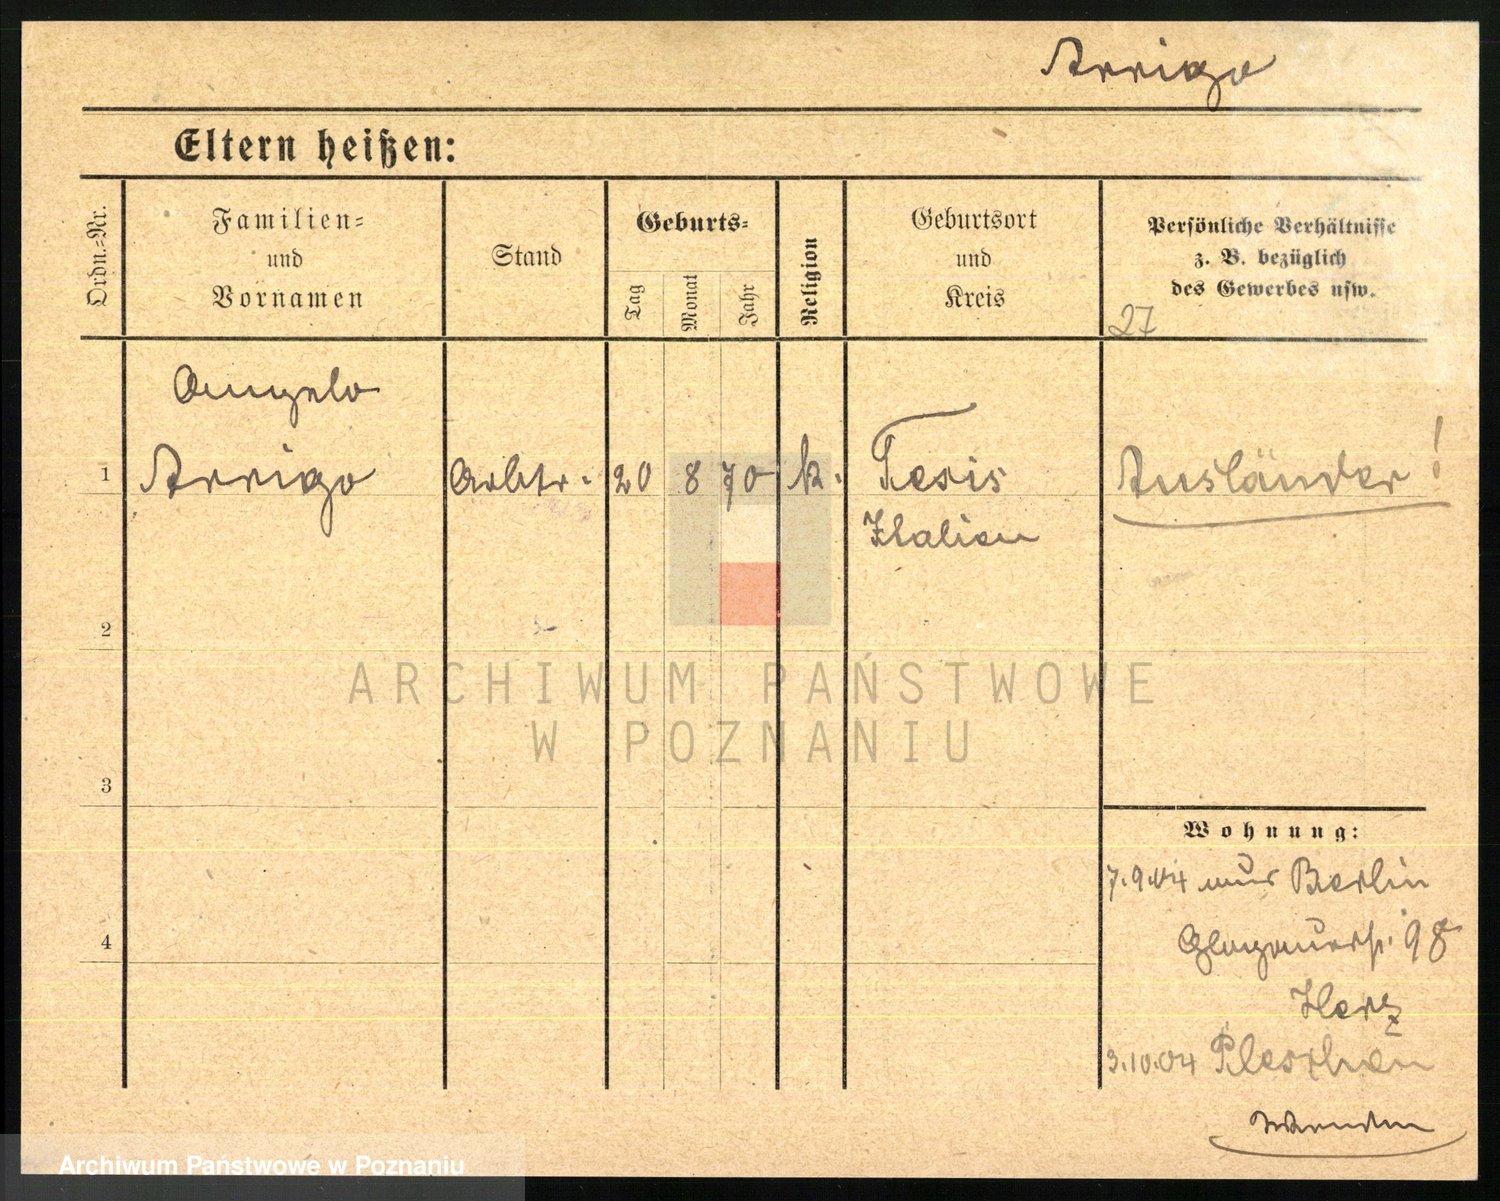 Arrigo
Eltern heißen:
Ordn.-Nr.
Familien-
und
Vornamen
Stand
Geburts-
Tag
Monat
Jahr
Religion
Geburtsort
und
Kreis
Persönliche Verhältnisse
z. B. bezüglich
des Gewerbes usw.
27
Angelo
1 Arrigo Arbtr. 20 8 70 k. Tesis Ausländer!
Italien
2
3
4
Wohnung:
7.9.04 aus Berlin
Glogauerstr. 98
Herz
3.10.04 Pleschen
ARCHIWUM PAŃSTWOWE
W POZNANIU
Archiwum Państwowe w Poznaniu